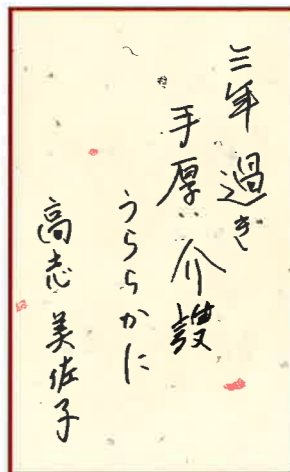 三年過き
手厚い介護
うららかに
高志美佐子